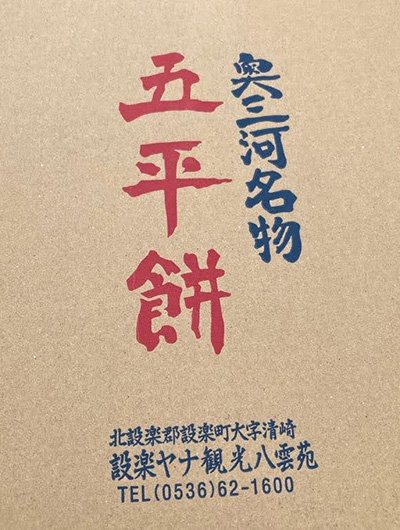 奥三河名物
五平餅
北設楽郡設楽町大字清崎
設楽ヤナ観光八雲苑
TEL(0536)62-1600